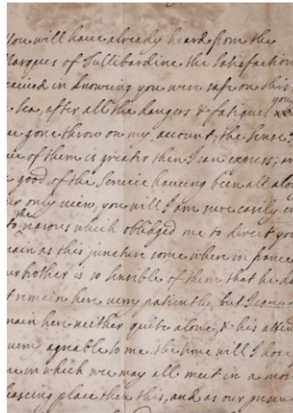 you will have already heard from the
Marques of Tullibardine the Satisfaction
received in knowing you were safe on this
sea, after all the dangers & fatigues you
gone throw on my account, the sense I
of them is greater then I can express; and
good of the Service haveing been all alo
only view, you will I am sure easily en
to the reasons which obledged me to direct you
main at this juncture some where in france
brother is so sensible of them that he do
remain here very patiently, but I
main here neither quite alone, & his atten
very agreable to me. the time will I hope
in which we may all meet in a mor
pleaseing place then this, and as our presen